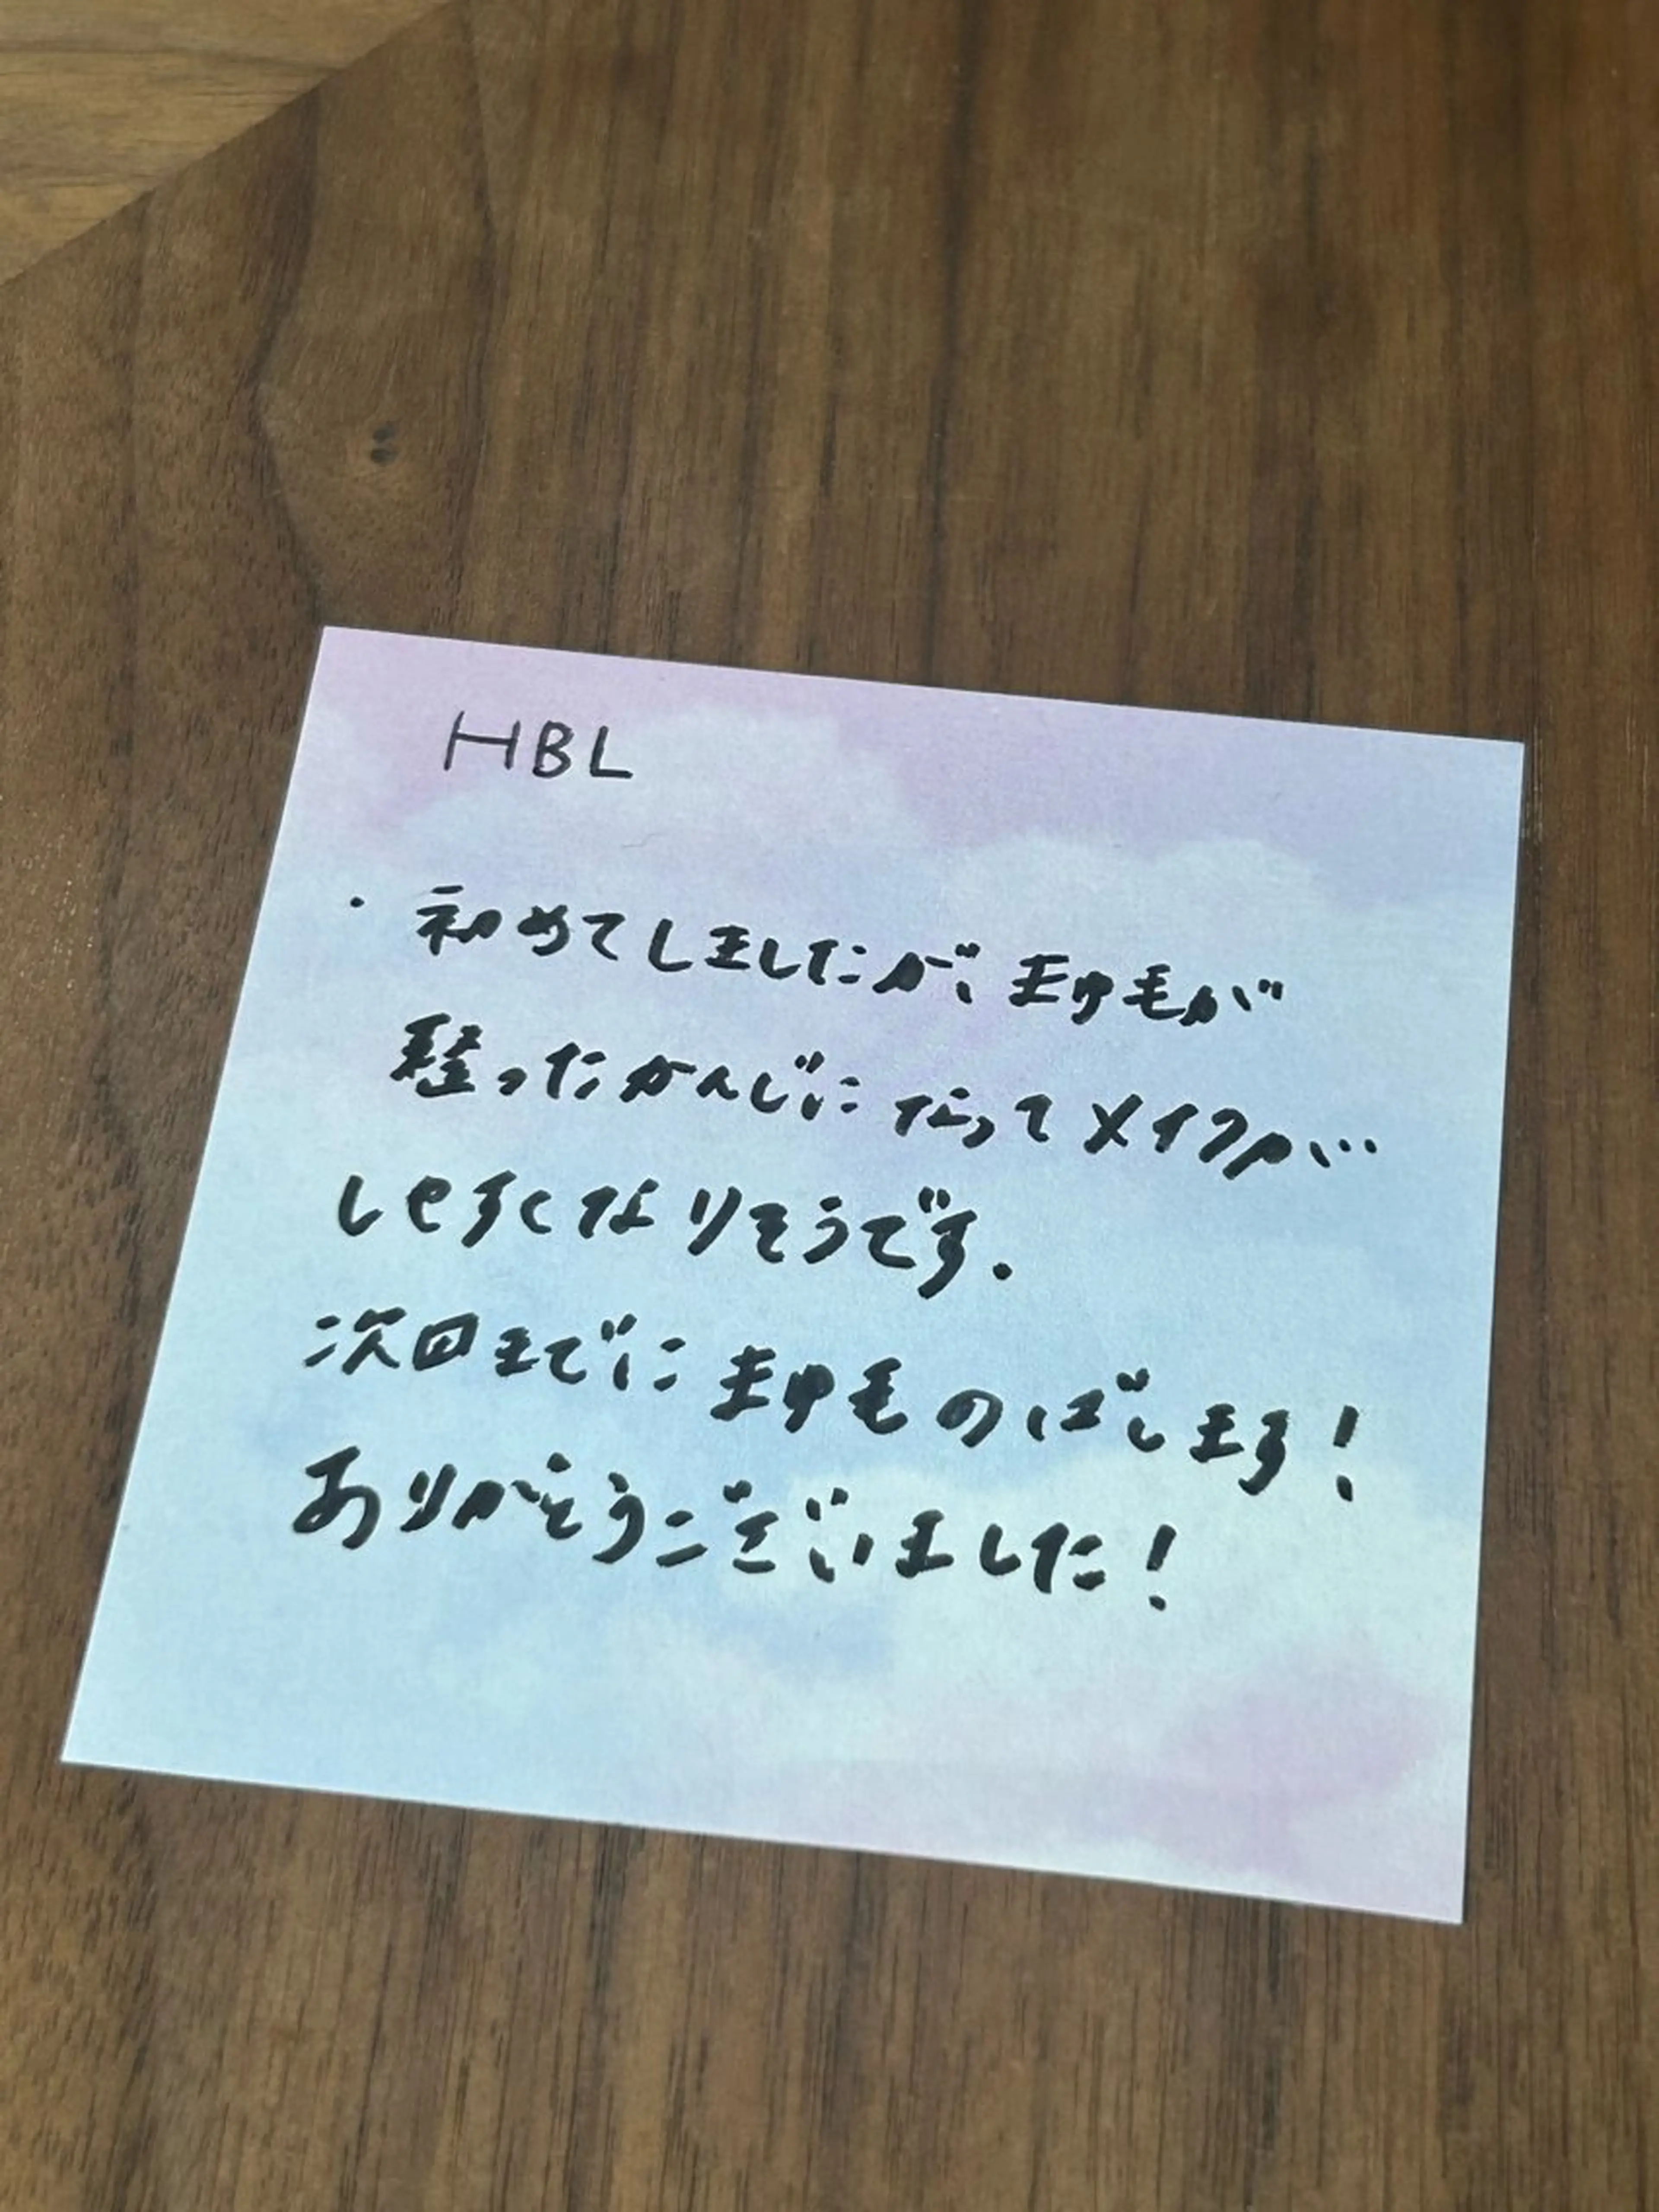 HBL
・初めてしましたが、まゆ毛が
整ったかんじになってメイクが
しやすくなりそうです.
次回までにまゆ毛のばします!
ありがとうございました!